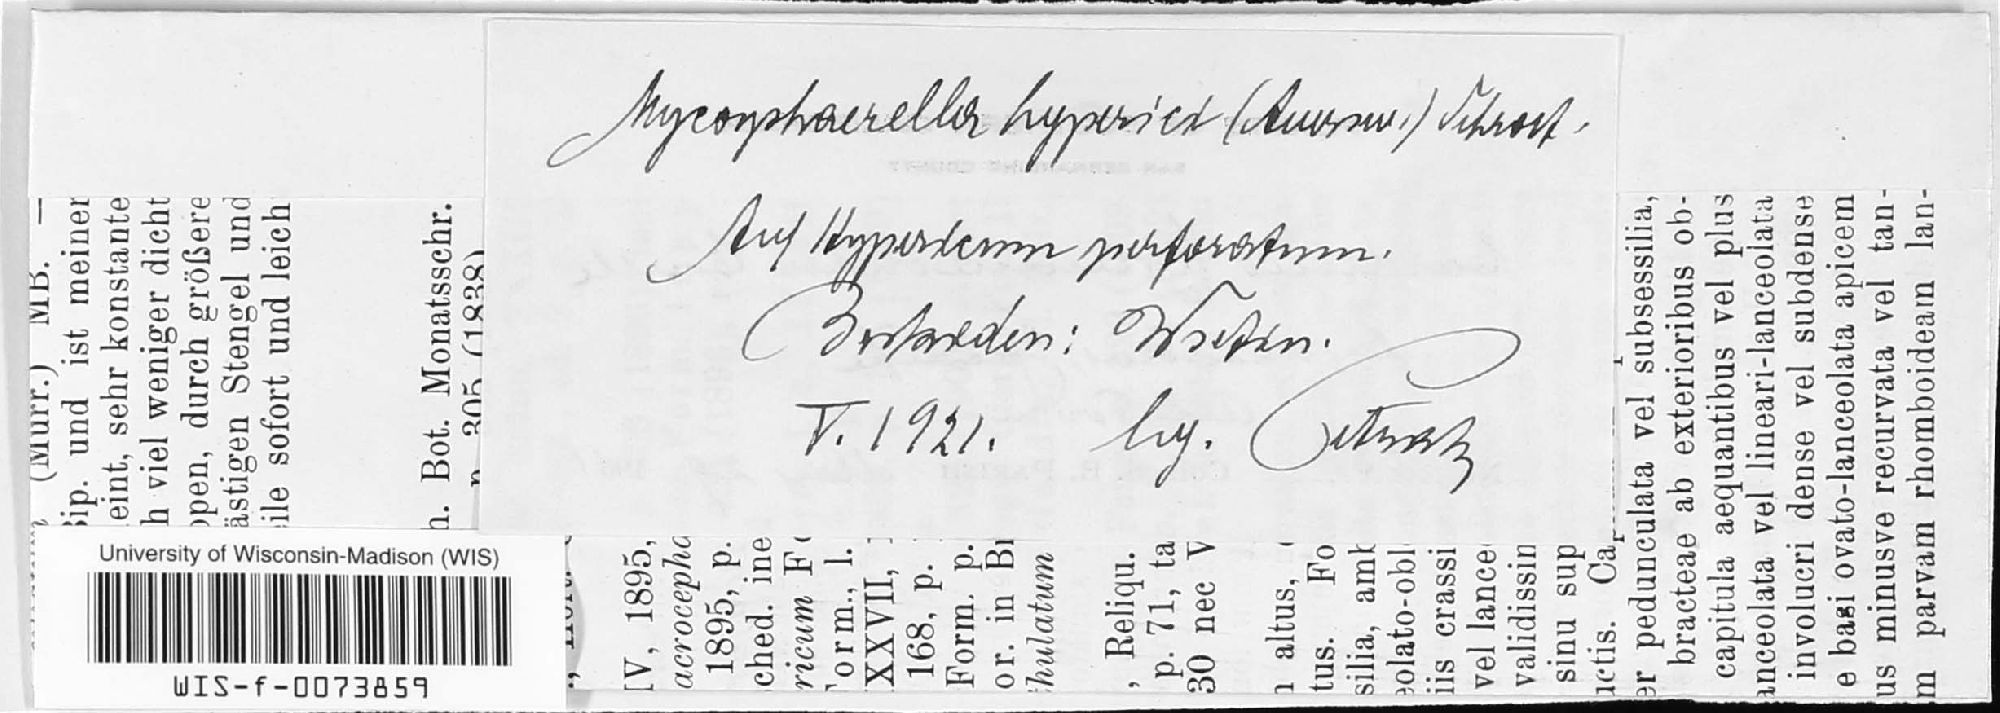 Mycosphaerella hyperici (Auersw.) Schroet.
Auf Hypericum perforatum.
V. 1921. lg. Petrak
University of Wisconsin-Madison (WIS)
WIS-f-0073859
(Murr.) MB. —
Bip. und ist meiner
eint, sehr konstante
h viel weniger dicht
ppen, durch größere
ästigen Stengel und
ile sofort und leich
n. Bot. Monatsschr.
p. 305 (1888)
IV, 1895,
acrocepha
1895, p.
ched. ine
ricum Fo
Form., l.
XXVII,
168, p.
Form. p.
or. in Br
thulatum
, Reliqu.
p. 71, ta
30 nec V
altus,
tus. Fo
silia, amb
eolato-obl
iis crassi
vel lance
validissin
sinu sup
uctis. Cap
er pedunculata vel subsessilia,
bracteae ab exterioribus ob-
capitula aequantibus vel plus
anceolata vel lineari-lanceolata
involucri dense vel subdense
e basi ovato-lanceolata apicem
us minusve recurvata vel tan-
m parvam rhomboideam lan-